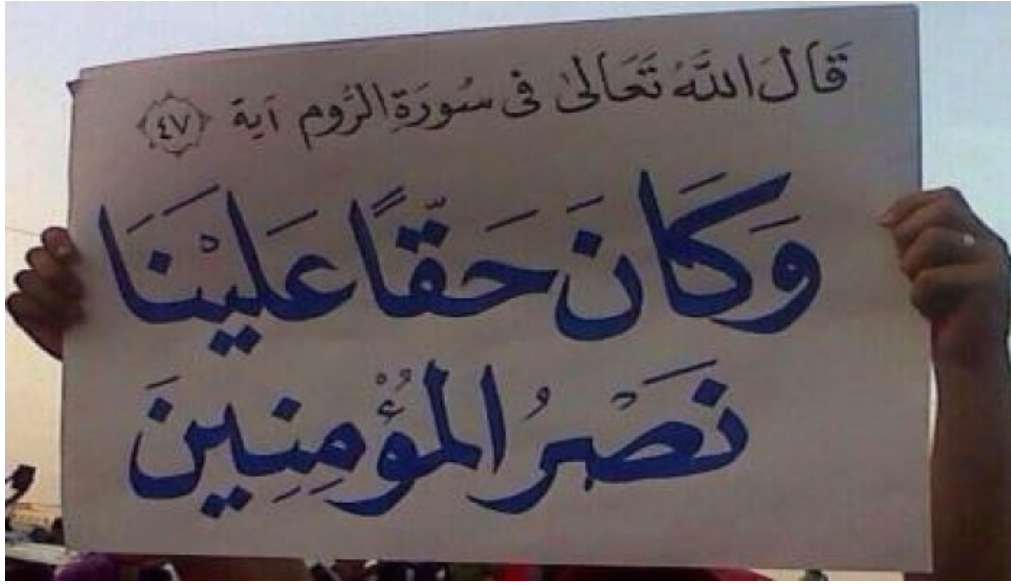 قَالَ اللَّهُ تَعَالَىٰ فِى سُورَةِ الرُّومِ آيَة ﴿٤٧﴾
وَكَانَ حَقًّا عَلَيْنَا
نَصْرُ الْمُؤْمِنِينَ